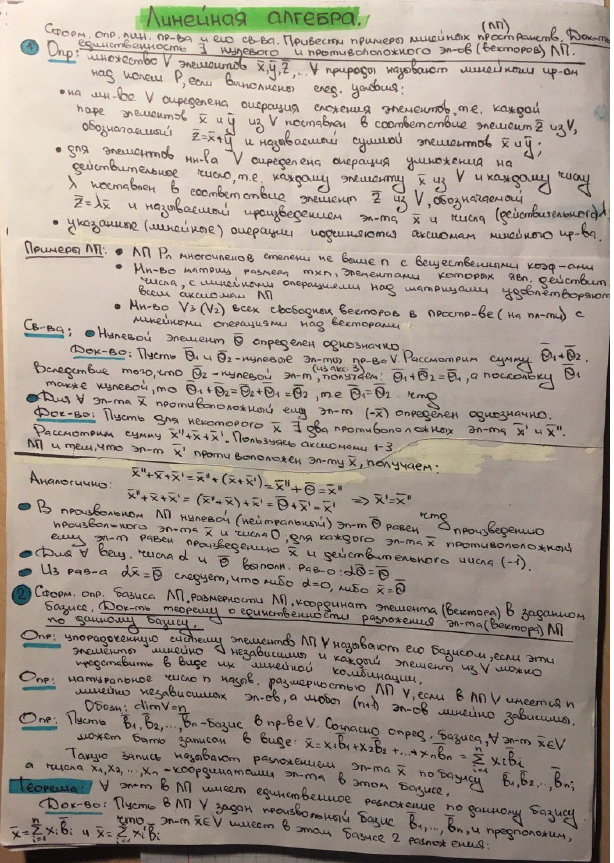 Линейная алгебра.
Сформ. опр. лин. пр-ва и его св-ва. Привести примеры линейных пространств. Док-ть
(ЛП)
единственность ∃ нулевого и противоположного эл-ов (векторов) ЛП.
① Опр: множество V элементов x̄,ȳ,z̄,...∀ природы называют линейным пр-ом
над полем P, если выполнены след. условия:
• на мн-ве V определена операция сложения элементов, т.е. каждой
паре элементов x̄ и ȳ из V поставлен в соответствие элемент z̄ из V,
обозначаемой z̄=x̄+ȳ и называемой суммой элементов x̄ и ȳ;
• для элементов мн-ва V определена операция умножения на
действительное число, т.е. каждому элементу x̄ из V и каждому числу
λ поставлен в соответствие элемент z̄ из V, обозначаемой
z̄=λx̄ и называемой произведением эл-та x̄ и числа (действительного) λ
• указанные (линейные) операции подчиняются аксиомам линейного пр-ва.
Примеры ЛП: • ЛП Pn многочленов степени не выше n с вещественными коэф-ами
• Мн-во матриц размера m×n, элементами которых явл. действит.
числа, с линейными операциями над матрицами удовлетворяют
всем аксиомам ЛП
• Мн-во V3 (V2) всех свободных векторов в простр-ве (на пл-ти) с
линейными операциями над векторами
Св-ва: • Нулевой элемент θ̄ определен однозначно.
Док-во: Пусть θ̄1 и θ̄2 - нулевые эл-ты пр-во V. Рассмотрим сумму θ̄1+θ̄2.
Вследствие того, что θ̄2 - нулевой эл-т, (из акс. 3) получаем: θ̄1+θ̄2=θ̄1, а поскольку θ̄1
также нулевой, то θ̄1+θ̄2=θ̄2+θ̄1=θ̄2, т.е θ̄1=θ̄2 чтд
• Для ∀ эл-та x̄ противоположный ему эл-т (-x̄) определен однозначно.
Док-во: Пусть для некоторого x̄ ∃ два противоположных эл-та x̄' и x̄".
Рассмотрим сумму x̄"+x̄+x̄'. Пользуясь аксиомами 1-3
ЛП и тем, что эл-т x̄' противоположен эл-ту x̄, получаем:
x̄"+x̄+x̄'=x̄"+(x̄+x̄')=x̄"+θ̄=x̄"
Аналогично: x̄"+x̄+x̄'=(x̄"+x̄)+x̄'=θ̄+x̄'=x̄' ⇒ x̄'=x̄" чтд
• В произвольном ЛП нулевой (нейтральный) эл-т θ̄ равен произведению
произвольного эл-та x̄ и числа 0, для каждого эл-та x̄ противоположный
ему эл-т равен произведению x̄ и действительного числа (-1).
• Для ∀ вещ. числа α и θ̄ выполн. рав-о: αθ̄=θ̄
• Из рав-а αx̄=θ̄ следует, что либо α=0, либо x̄=θ̄
② Сформ. опр. базиса ЛП, размерности ЛП, координат элемента (вектора) в заданном
базисе. Док-ть теорему о единственности разложения эл-та (вектора) ЛП
по данному базису.
Опр: упорядоченную систему элементов ЛП V называют его базисом, если эти
элементы линейно независимы и каждый элемент из V можно
представить в виде их линейной комбинации.
Опр: натуральное число n назыв. размерностью ЛП V, если в ЛП V имеется n
линейно независимых эл-ов, а любые (n+1) эл-ов линейно зависимы.
Обозн: dimV=n
Опр: Пусть b̄1, b̄2,..., b̄n - базис в пр-ве V. Согласно опред. базиса, ∀ эл-т x̄∈V
может быть записан в виде: x̄=x1b̄1+x2b̄2+...+xnb̄n=∑ⁿᵢ₌₁ xib̄i
Такую запись называют разложением эл-та x̄ по базису b̄1, b̄2,..., b̄n;
а числа x1, x2,..., xn - координатами эл-та в этом базисе.
Теорема: ∀ эл-т в ЛП имеет единственное разложение по данному базису
Док-во: Пусть в ЛП V задан произвольный базис b̄1,..., b̄n, и предположим,
что эл-т x̄∈V имеет в этом базисе 2 разложения:
x̄=∑ⁿᵢ₌₁ xib̄i и x̄=∑ⁿᵢ₌₁ xi'b̄i